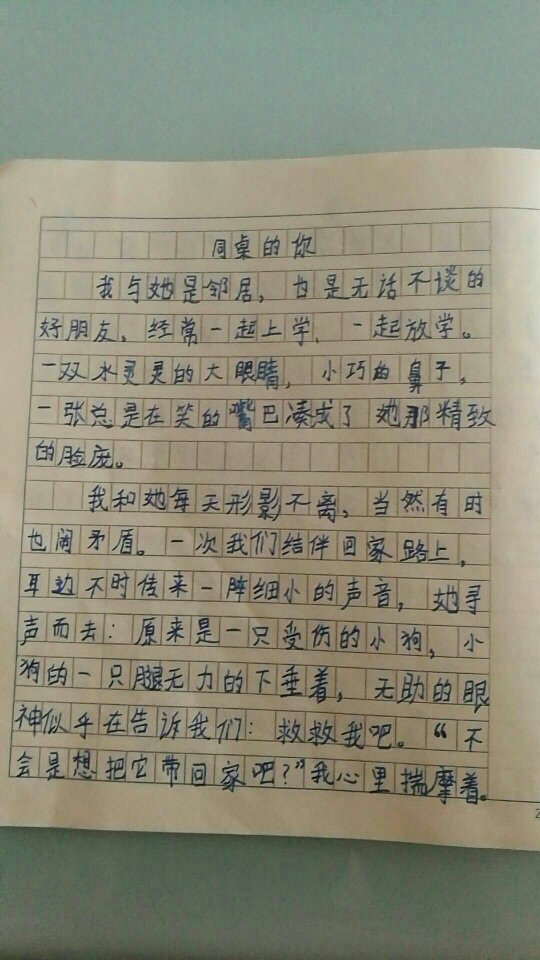 同桌的你
我与她是邻居，也是无话不谈的
好朋友，经常一起上学，一起放学。
一双水灵灵的大眼睛，小巧的鼻子，
一张总是在笑的嘴巴凑成了她那精致
的脸庞。
我和她每天形影不离，当然有时
也闹矛盾。一次我们结伴回家路上，
耳边不时传来一阵细小的声音，她寻
声而去：原来是一只受伤的小狗，小
狗的一只腿无力的下垂着，无助的眼
神似乎在告诉我们：救救我吧。“不
会是想把它带回家吧？”我心里揣摩着。
2